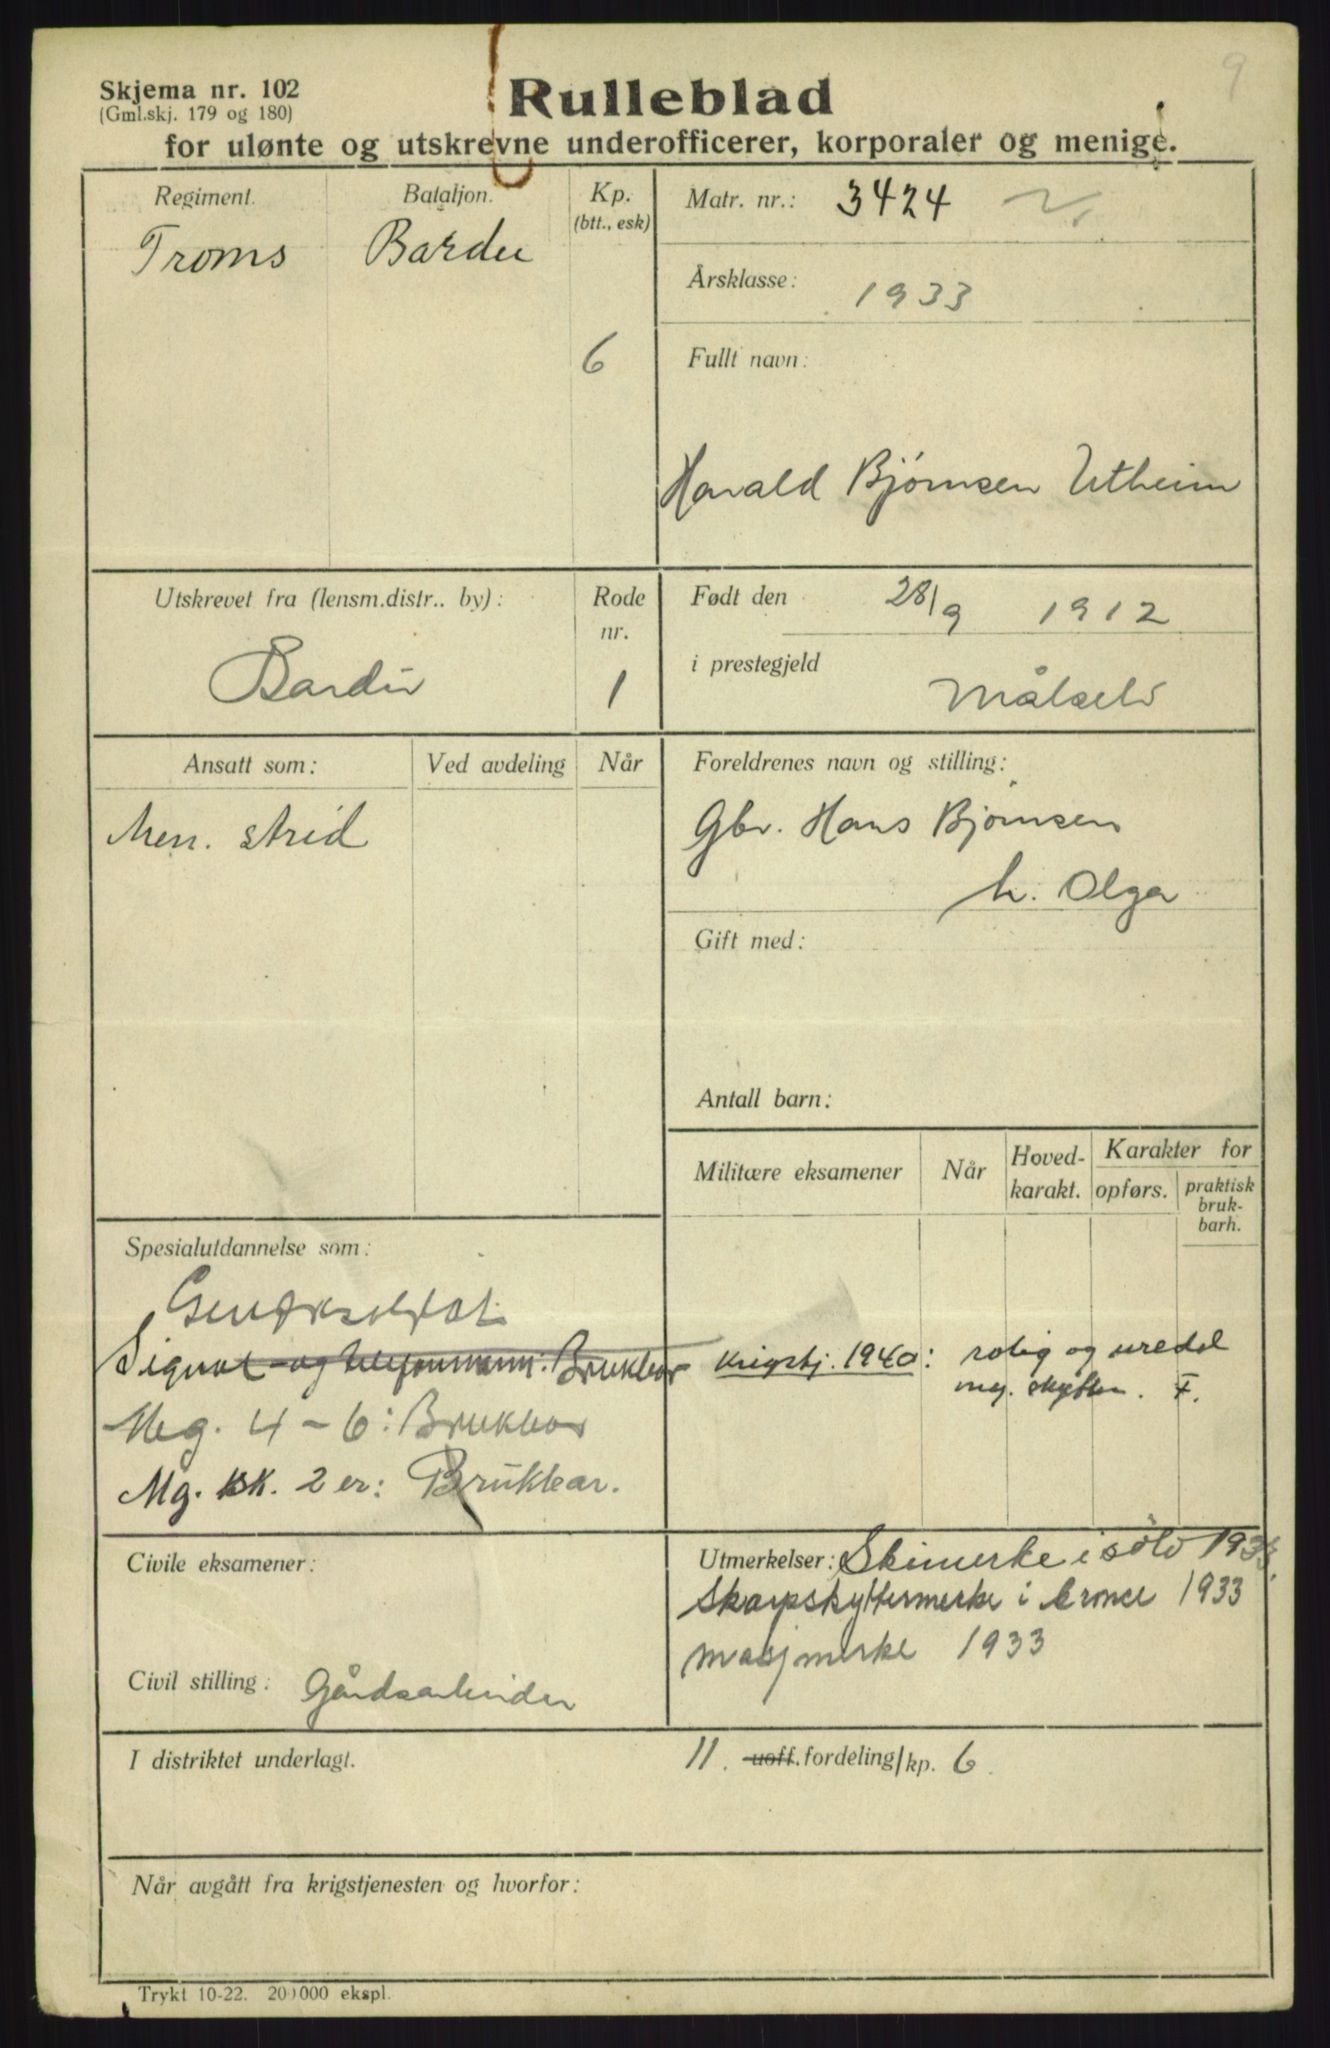 9
Skjema nr. 102
(Gml.skj. 179 og 180)
Rulleblad
for ulønte og utskrevne underofficerer, korporaler og menige.
Regiment.
Troms
Bataljon.
Bardu
Kp.
(btt., esk)
6
Matr. nr.: 3424
Årsklasse: 1933
Fullt navn:
Harald Bjørnsen Utheim
Utskrevet fra (lensm.distr.. by):
Bardu
Rode
nr.
1
Født den 28/9 1912
i prestegjeld Målselv
Ansatt som:
Men. strid
Ved avdeling
Når
Foreldrenes navn og stilling:
Gbr. Hans Bjørnsen
h. Olga
Gift med:
Antall barn:
Militære eksamener
Når
Hoved-
karakt.
Karakter for
opførs.
praktisk
bruk-
barh.
Krigstj. 1940: rolig og uredd
meg. skytter. F.
Spesialutdannelse som:
Signal- og telefonmann: Brukbar
Meg. 4 - 6: Brukbar
Mg. kk. 2 er: Brukbar.
Civile eksamener:
Civil stilling: Gårdsarbeider
Utmerkelser: Skimerke i sølv 1933.
Skarpskyttermerke i bronce 1933
Marsjmerke 1933
I distriktet underlagt.
11. uoff. fordeling/kp. 6.
Når avgått fra krigstjenesten og hvorfor:
Trykt 10-22. 200000 ekspl.